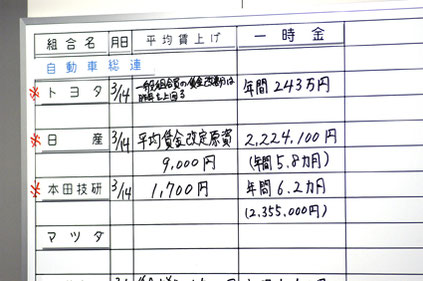 組合名 月日 平均賃上げ 一時金
自動車総連
※トヨタ 3/14 一般組合員の賃金改善分は 年間243万円
昨年を上回る
※日産 3/14 平均賃金改定原資 2,224,100円
9,000円 (年間5.8カ月)
※本田技研 3/14 1,700円 年間6.2カ月
(2,355,000円)
マツダ